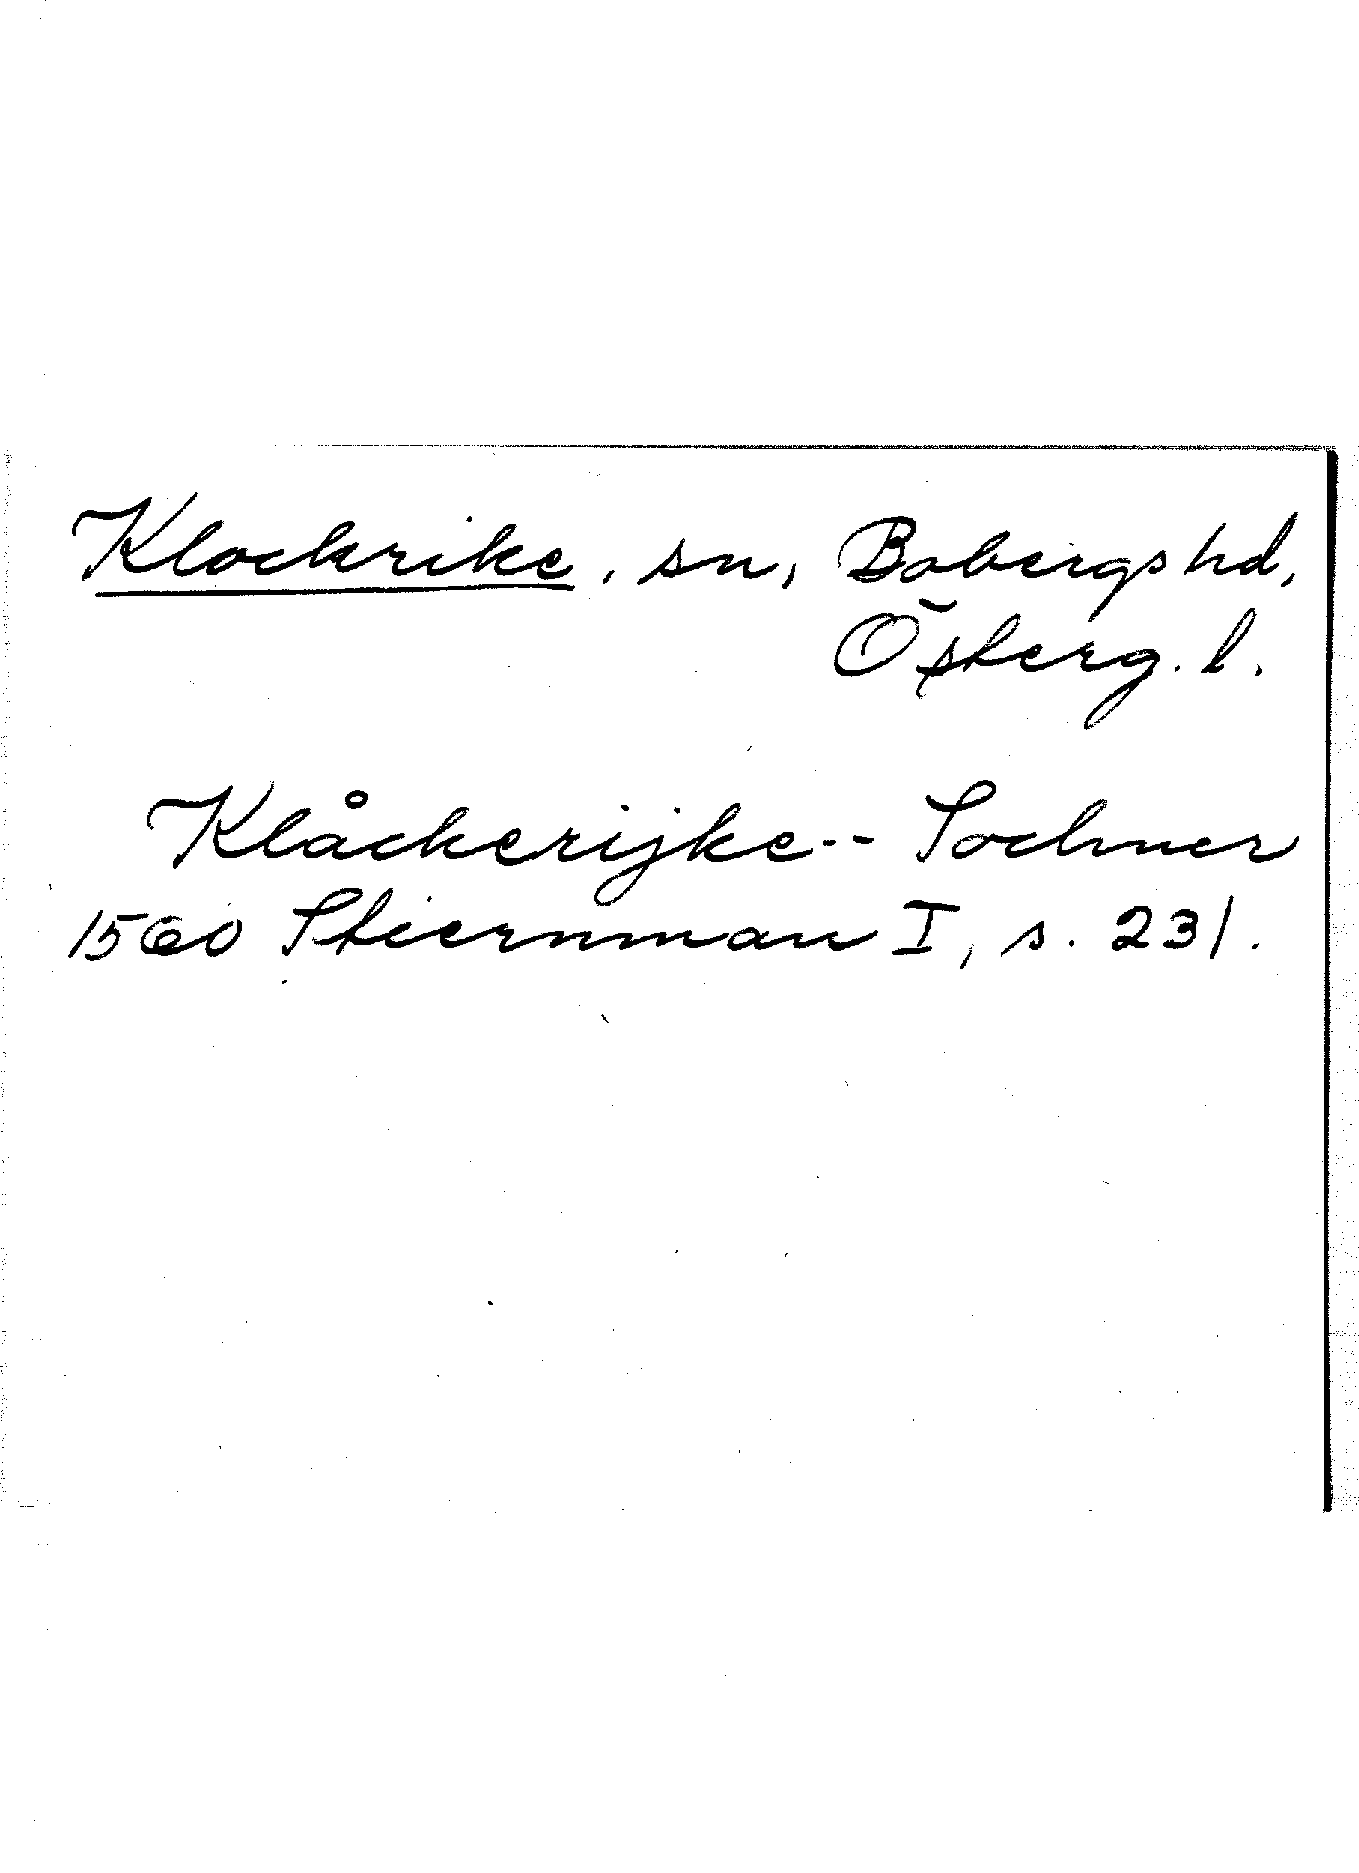 Klockrike, sn, Bobergs hd,
Österg. l.
Klåckerijke-- Sochner
1560 Stiernman I, s. 231.